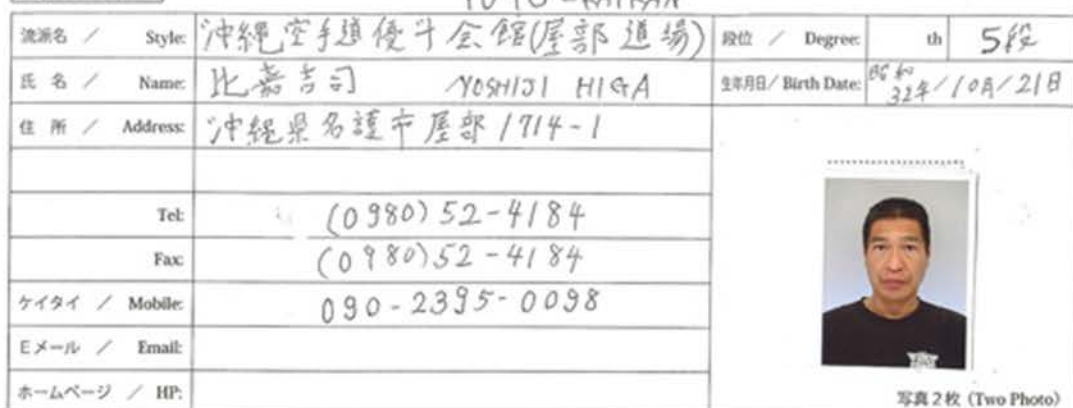 流派名 / Style: 沖縄空手道優斗会館(屋部道場)
段位 / Degree: th 5段
氏名 / Name: 比嘉吉司 YOSHIJI HIGA
生年月日/ Birth Date: 昭和32年/10月/21日
住所 / Address: 沖縄県名護市屋部1714-1
Tel: (0980)52-4184
Fax: (0980)52-4184
ケイタイ / Mobile: 090-2395-0098
Eメール / Email:
ホームページ / HP:
写真2枚 (Two Photo)